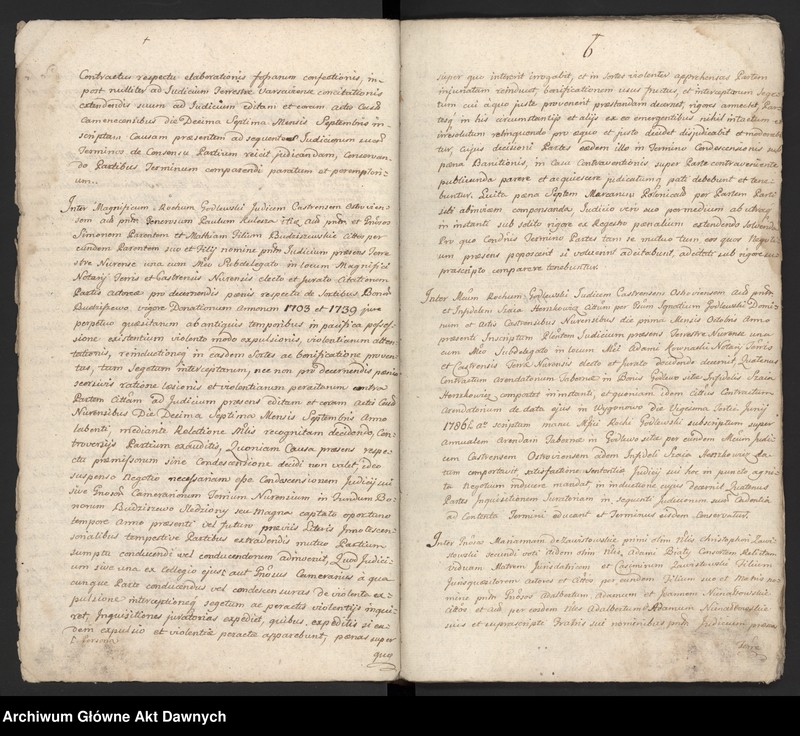 Contractus respectu elaborationis fossarum confectionis, in-
post nulliter ad Judicium Terrestre Varsaviense concitationis
extendendis suum ad Judicium editani et eorum actis Castr.
camenecensibus die Decima Septima Mensis Septembris in-
scriptam Causam praesentem ad sequentem Judiciorum suor.
Terminos de Consensu Partium reicit judicandam, Conservan-
do Partibus Terminum comparendi paratum et peremptori-
um.
Inter Magnificum Rochum Godlewski Judicem Castrensem Ostrvien-
sem
Simonem Parentem et Mathiam Filium Budziszewskie Cittos per
eundem Parentem suo et Filij nomine pntm Judicium praesens Terre
stre Nurense una cum Meo Subdelegato in locum Magnifici
Notarij Terris et Castrensis Nurensis electo et jurato Citationem
Partis actoreae pro decernendis poenis respectu de Sortibus Bonor.
Budziszewo vigore Donationum Annorum 1703 et 1739 jure
perpetuo quaesitarum ab antiquis temporibus in pacifica posses-
sione existentium violento modo expulsionis, violentiarum atten-
tationis, reinductionis in easdem Sortes ac bonificatione proven-
tus, tum Segetum interceptarum, nec non pro decernendis poenis
ratione lesionis et violentiarum peractarum contra
Partem Cittam ad Judicium praesens editam et eorum actis Castr.
Nurensibus Die Decima Septima Mensis Septembris Anno
labenti, mediante Relatione Mlis recognitam decidendo, Con-
troversijs Partium exauditis, Quoniam Causa praesens respe-
ctu praemissorum sine Condescensione decidi non valet, ideo
suspenso Negotio necessariam esse Condescensionem Judicij sui
sive Gnosor. Camerariorum Terrium Nurensium in Fundum Bo-
norum Budziszewo Sledziony seu magna captato oportuno
tempore Anno praesenti vel futuro praevijs Literis Innotescen-
tialibus tempestive Partibus extradendis mutuo Partium
sumptu conducendi vel conducendorum adinvenit, Quod Judici-
um sive una ex Collegio ejus aut Gnosus Camerarius à qua-
cunque Parte conducendus vel condescensurus de violenta ex-
pulsione interceptioneq segetum ac peractis violentijs inqui-
ret, Inquisitiones juratorias expediet, quibus expeditis si ea-
dem expulsio et violentiae peractae apparebunt, poenas super
quo
6
super quo intererit irrogabit, et in Sortes violenter apprehensas Partem
injuriatam reinduet, bonificationem usus fructus, et interceptorum Sege-
tum cui à quo juste provenerit praestandam decernet, rigores annectet, Par-
tesq in his circumstantijs et alijs ex eo emergentibus nihil intactum et
irresolutum relinquendo pro equo et justo decidet disjudicabit et moderabi-
tur, cujus decisioni Partes eaedem illo in Termino Condescensionis sub
poena Banitionis, in casu Contraventionis super Parte contraveniente
publicanda parere et acquiescere judicatumq pati debebunt et tene-
buntur. Luita poena Septem Marcarum Polonicarum per Partem Parti
sibi ad invicem compensanda Judicio vero suo per medium ab utraq.
in instanti sub solito rigore ex Regestro paenalium extendendo Solvenda
Pro quo Condnis Termino Partes tam se mutuo tum eos quos Negoti-
um praesens poposcerit si voluerint adcitabunt, adcitati sub rigore su-
prascripto comparere tenebuntur.
Inter Mcum Rochum Godlewski Judicem Castrensem Ostroviensem
et Infidelem Szaia Herszkowicz Cittum per Gnosum Ignatium Godlewski Domi-
num et Actis Castrensibus Nurensibus die prima Mensis Octobris Anno
praesenti Inscriptum Plentem Judicium praesens Terrestre Nurense una
cum Meo Subdelegato in locum Mci Adami Notarij Terris
et Castrensis Terrae Nurensis electo et jurato decidendo decernit Quatenus
Contractum Arendatorium Tabernae in Bonis Godlewo sitae Infidelis Szaia
Herszkowicz comportet in instanti, et quoniam idem Cittus Contractum
Arendatorium de data ejus in Wyzonowo die Vigesima Sexta Junij
1786to a. scriptum manu Mfici Rochi Godlewski subscriptum super
Annualem Arendam Tabernae in Godlewo sitae per eundem Mcum Judi-
cem Castrensem Ostroviensem adem Infideli Szaia Herszkowicz da-
tum comportavit, satisfactione sententiae Judicij sui hoc in puncto agni-
ta Negotium inducere mandat, in inductione cujus decernit Quatenus
Partes Inquisitionem Juratoriam in sequenti Judiciorum suor. Cadentia
ad Contenta Termini educant et Terminus eisdem conservatur.
Inter Gnosos Mariannam de Zawistowskie primi olim Nlis Christophori
secundi voti itidem olim Nlis Adami Biały Consortem Relictam
viduam Matrem Jurisdatricem et Casimirum Zawistowski Filium
Jurisquaesitorem Actores et Cittos per eundem Filium suo et Matris no-
mine pntm Gnosos Adalbertum Adamum et Joannem
Cittos et Actores per eosdem Nlis Adalbertum et Adamum
suis et suprascripti Fratris sui nominibus pntm Judicium praesens
Archiwum Główne Akt Dawnych